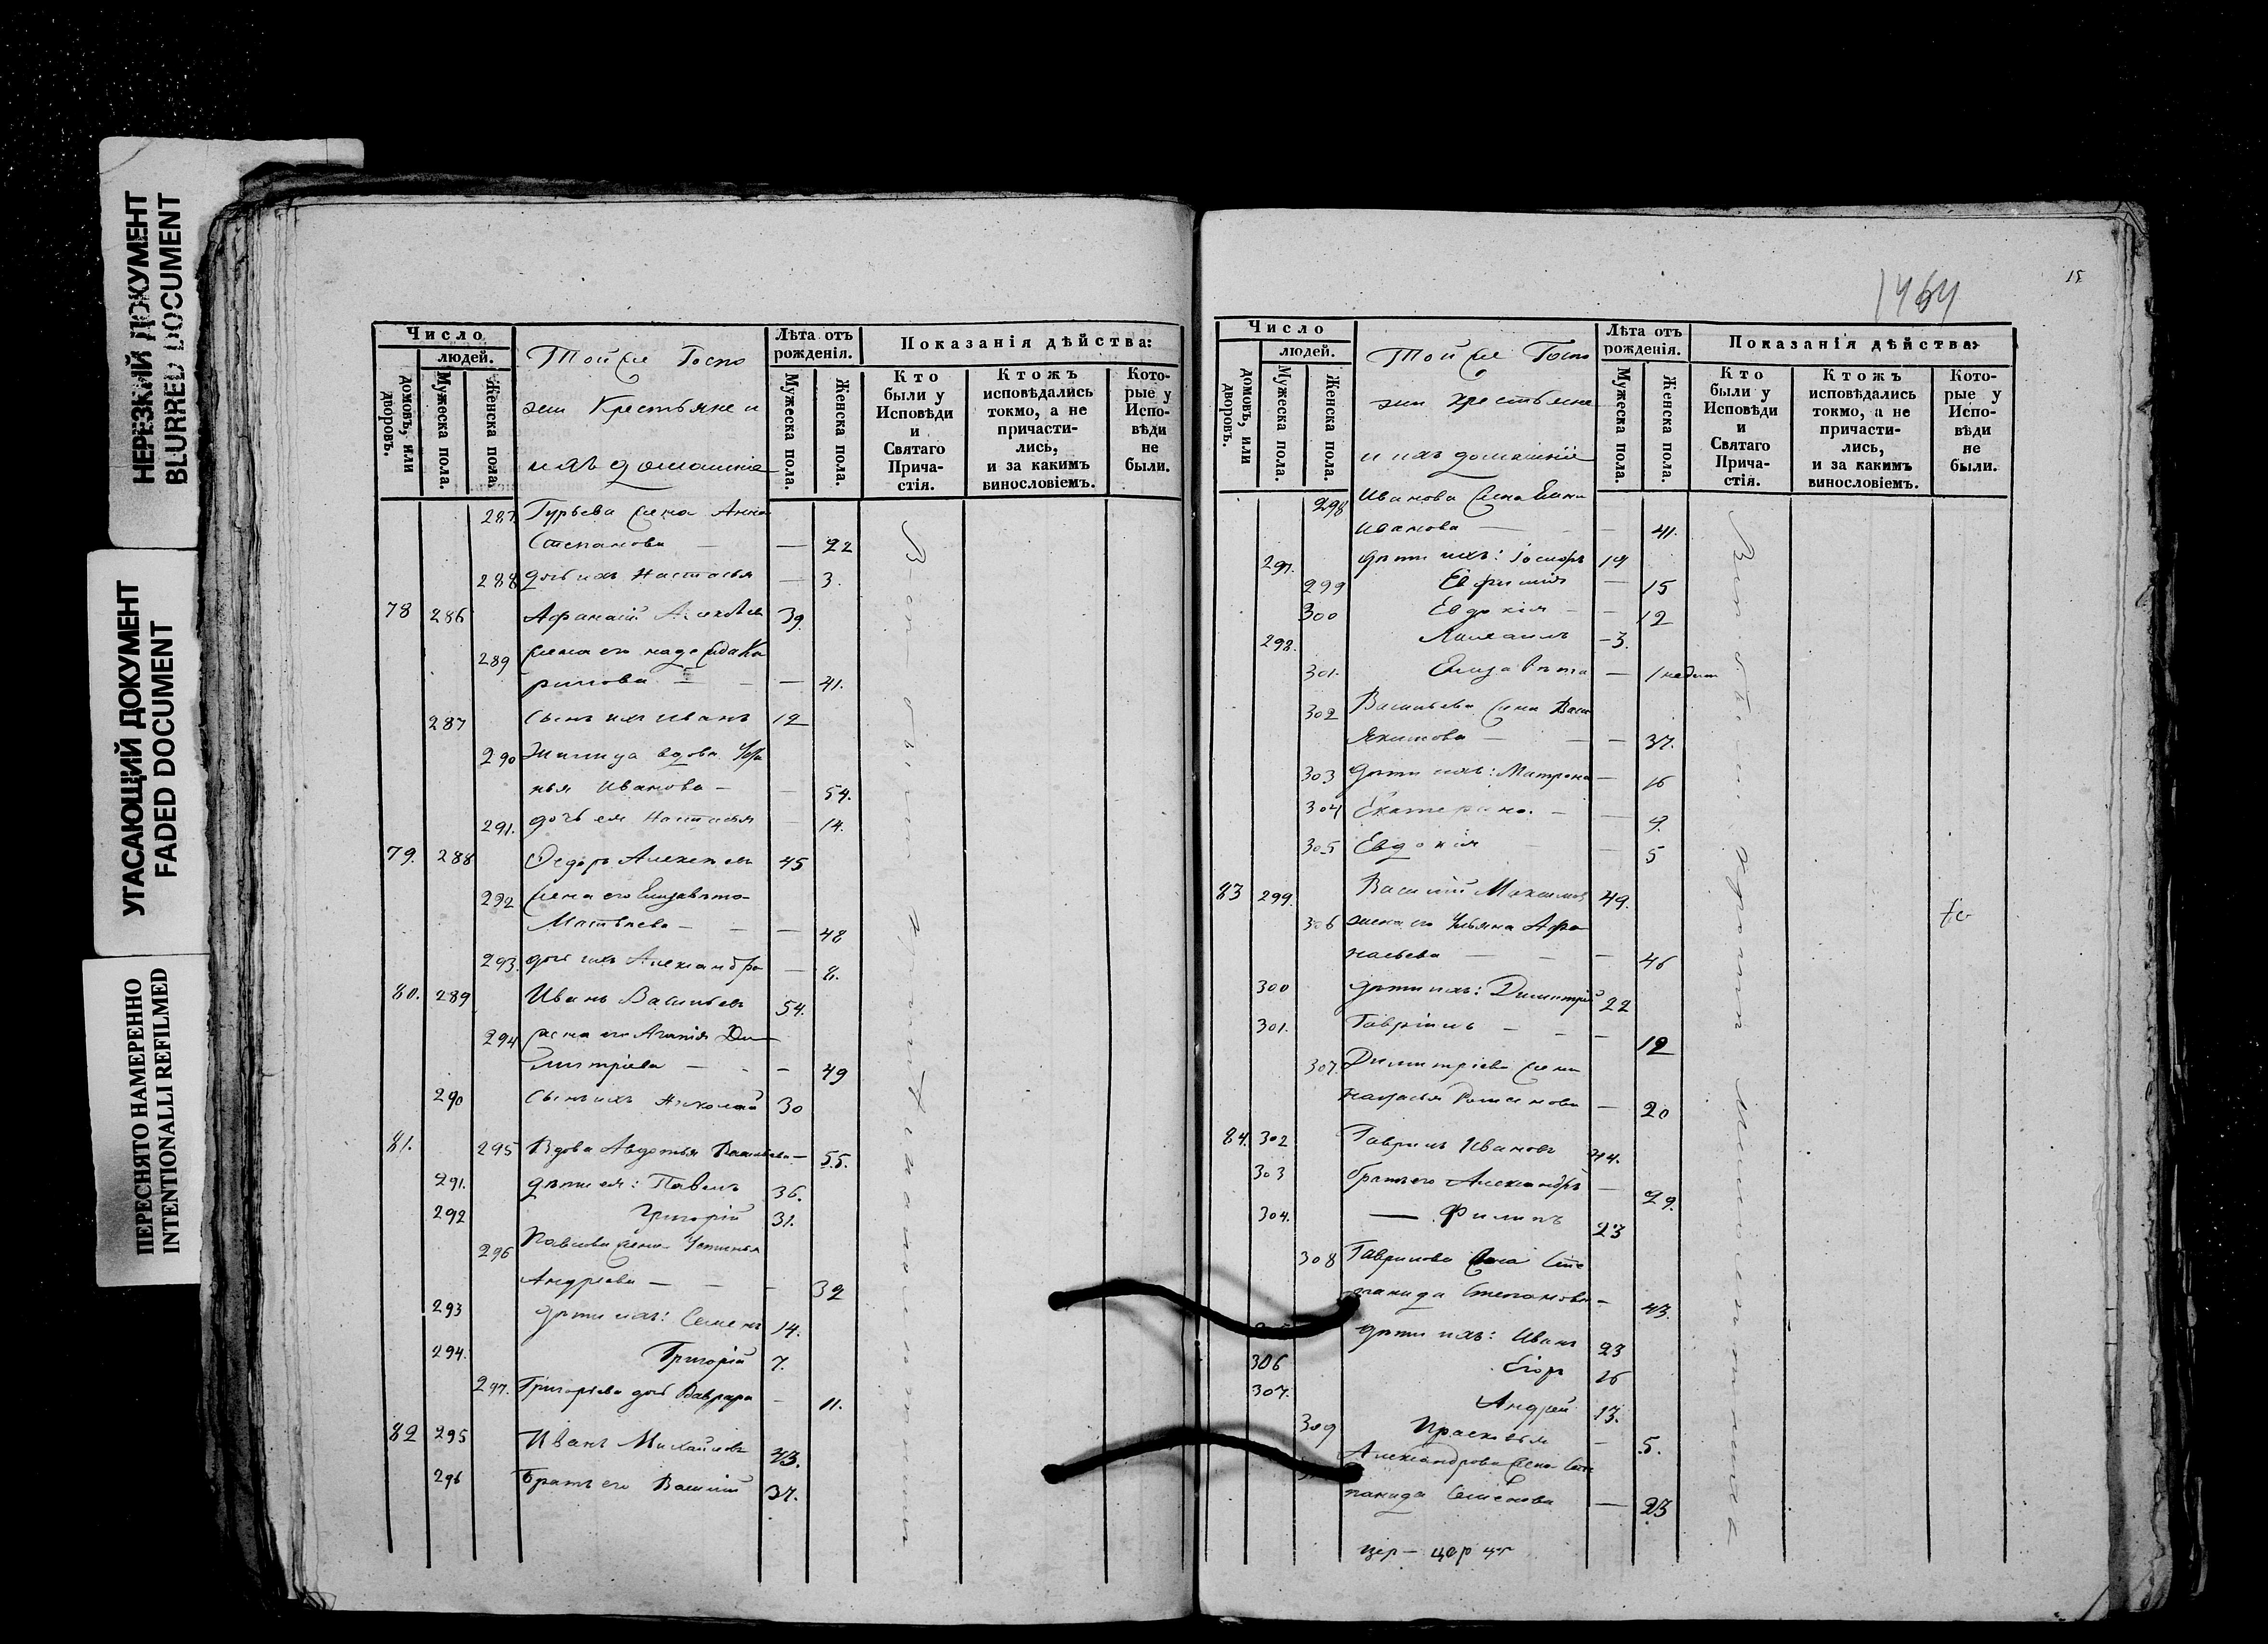 НЕРЕЗКИЙ ДОКУМЕНТ
BLURRED DOCUMENT
УГАСАЮЩИЙ ДОКУМЕНТ
FADED DOCUMENT
ПЕРЕСНЯТО НАМЕРЕННО
INTENTIONALLI REFILMED
Число
людей.
домовъ, или дворовъ.
Мужеска пола.
Женска пола.
Той же Госпо
жи Крестьяне и
ихъ домашніе
Лѣта отъ рожденія.
Мужеска пола.
Женска пола.
Показанія дѣйства:
Кто были у Исповѣди и Святаго Прича- стія.
Ктожъ исповѣдались токмо, а не причасти- лись, и за какимъ винословіемъ.
Кото- рые у Испо- вѣди не были.
287 Гурьева жена Анна
Степанова — — 22
288 дочь ихъ Настасья — 3.
78 286 Афанасій 39
289 жена его надежда Ка
рпова — — — 41.
287 Сынъ ихъ Иванъ 12
290 Жилица вдова
нья Иванова — — 54.
291. дочь ея Настасья — 14.
79. 288 Ѳедоръ Алексѣевъ 45
292 жена его Елизавета
Матвѣева — — — 48
293. дочь ихъ Александра — 8.
80. 289 Иванъ Васильевъ 54.
294 жена его Агапія Ди
митріева — — — 49
290 Сынъ ихъ Николай 30
81. 295 Вдова Авдотья Васильева — 55.
291. дѣти ея: Павелъ 36.
292 Григорій 31.
296 Павлова жена Устинья
Андреева — — — 32
293 дѣти ихъ: Семенъ 14.
294. Григорій 7.
297. Григорьева дочь Варвара — 11.
82 295 Иванъ Михайловъ 43.
296 Братъ его Василій 37.
1464
15
Число
людей.
домовъ, или дворовъ.
Мужеска пола.
Женска пола.
Той же Госпо
жи Крестьяне
и ихъ домашніе
Лѣта отъ рожденія.
Мужеска пола.
Женска пола.
Показанія дѣйства:
Кто были у Исповѣди и Святаго Прича- стія.
Ктожъ исповѣдались токмо, а не причасти- лись, и за какимъ винословіемъ.
Кото- рые у Испо- вѣди не были.
298 Иванова жена
Иванова — — 41.
297. дѣти ихъ: Іосифъ 19
299 Евфимія — 15
300 Евдокія — — 12
298. Михаилъ — 3.
301. Елизавета — 1
302 Васильева жена Васи
Якимова — — — 37.
303 дѣти ихъ: Матрона — 16
304 Екатерина. — — 9.
305 Евдокія — — 5
83 299. Василій Максимовъ 49.
306 жена его Ульяна Афа
насьева — — — 46
300 дѣти ихъ: Димитрій 22
301. Гавріилъ — — — 12
307. Димитріева жена
Наталья Романова — 20
84. 302 Гаврилъ Ивановъ 44.
303 братъ его Александръ — 29.
304. — Филипъ 23
308 Гаврилова жена Сте
панида Степанова — 43.
дѣти ихъ: Иванъ 23
306 Егоръ 16
307. Андрей 13.
309 Прасковья — 5.
Александрова жена Сте
панида Семенова — 23